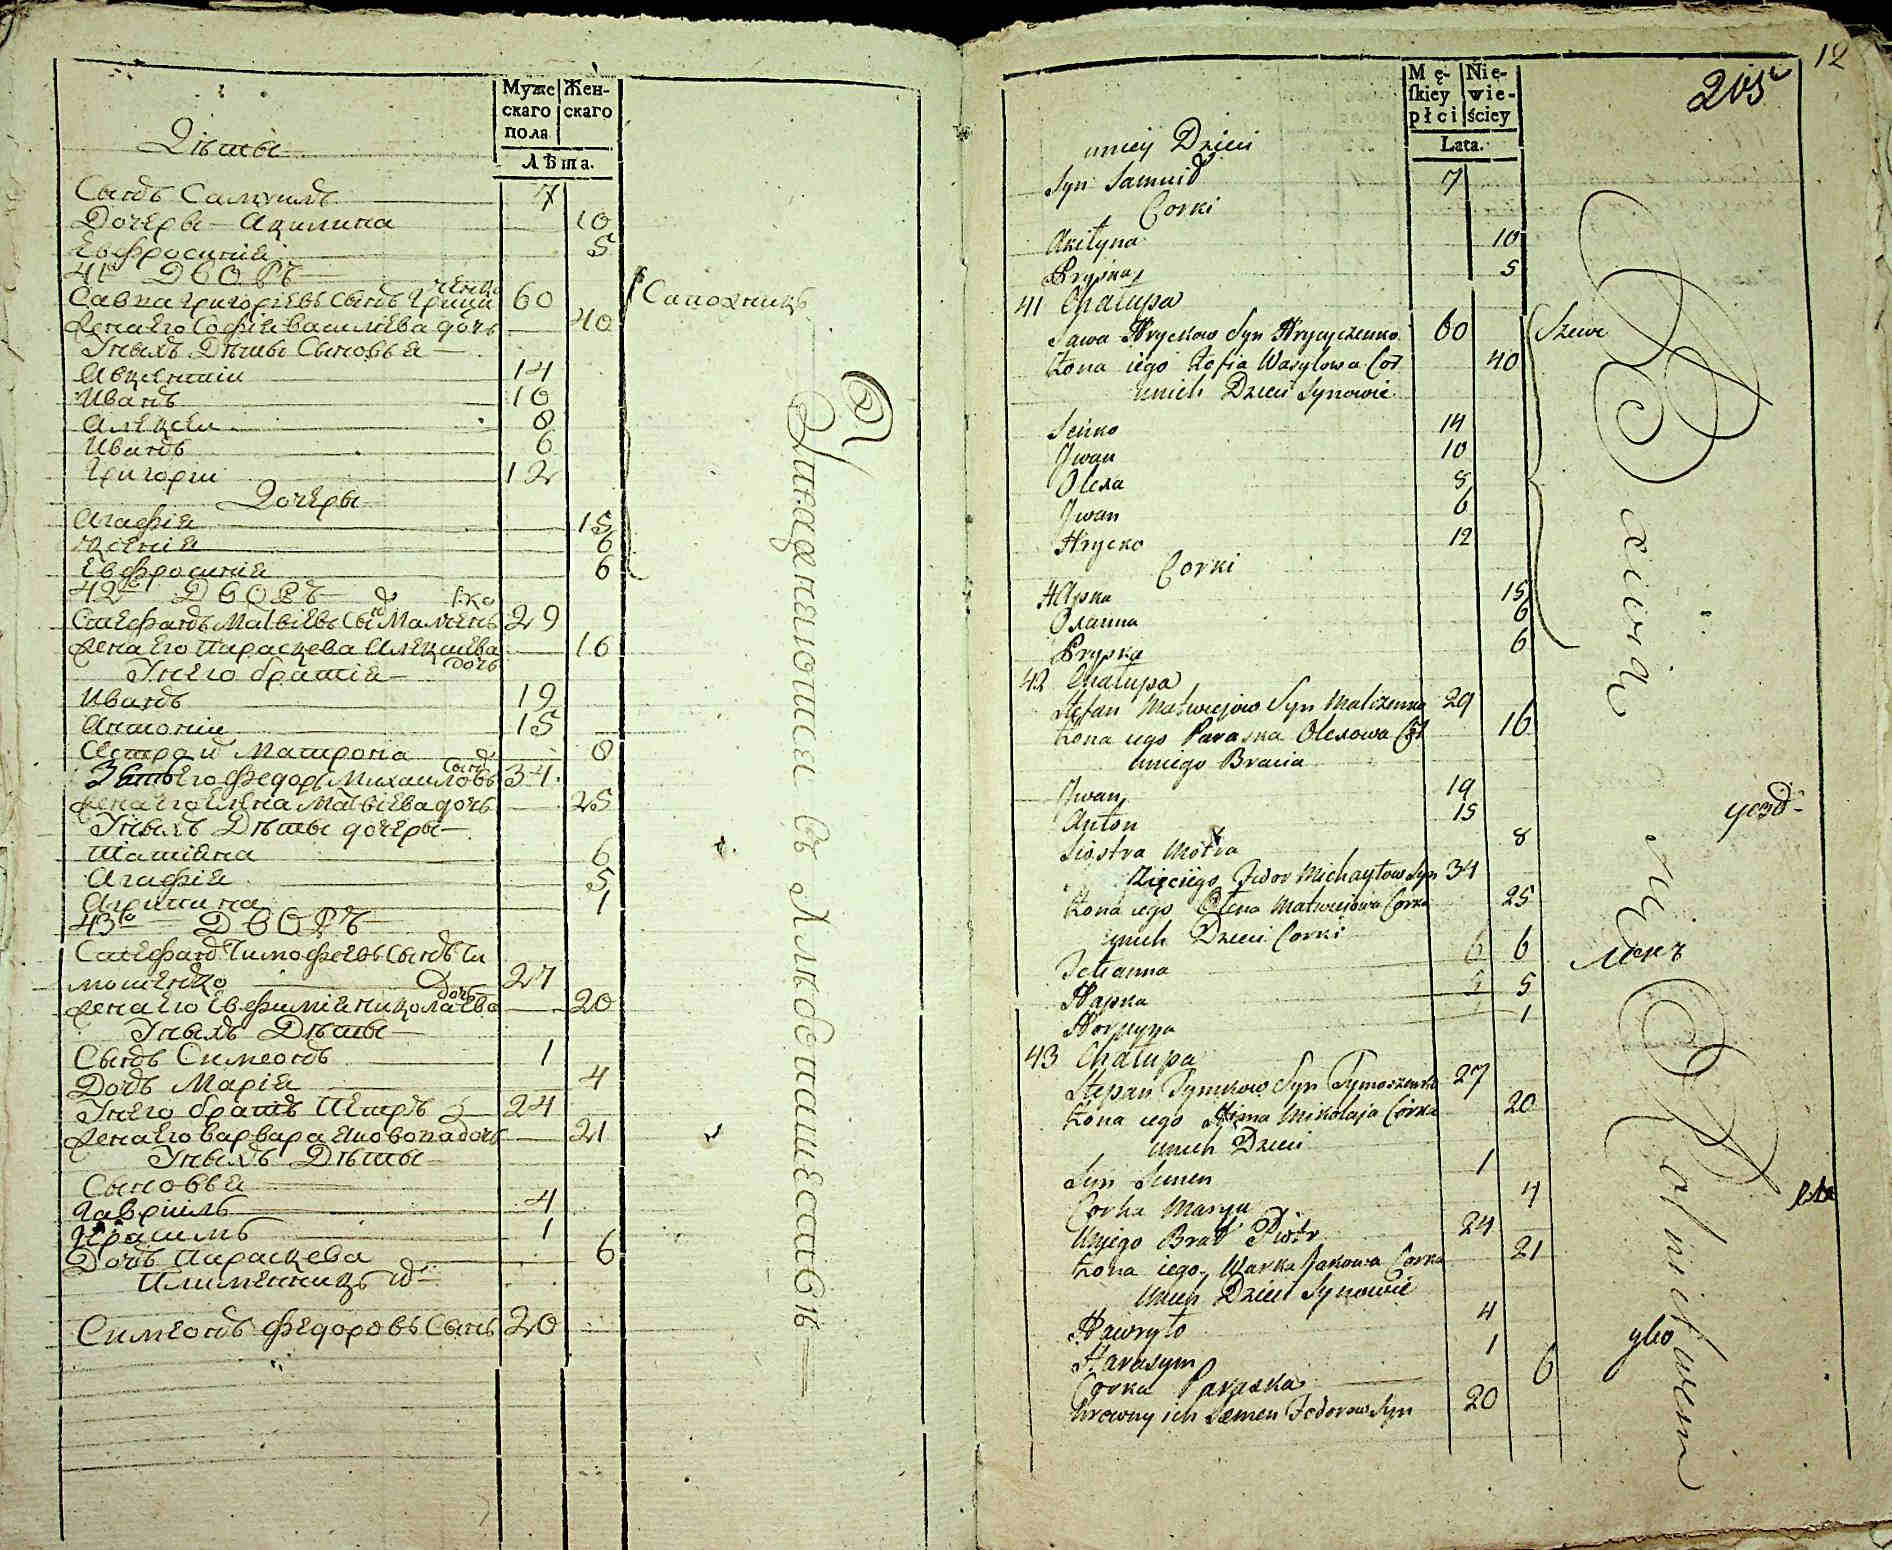 Муже
скаго
пола
Жен-
скаго
Лѣта.
Дѣти
Сынъ Самуилъ 7
Дочери Акилина 10
Евфросиния 5
41 Дворъ
Савка Григориевъ сынъ Грицченко 60 Сапожникъ
жена его София Василиева дочь 40
У нихъ дѣти сыновья
Авксентии 14
Иванъ 10
Алексеи 8
Иванъ 6
Григории 12
Дочери
Агафия 15
Ксения 6
Евфросиния 6
42 Дворъ
Стефанъ Матвиевъ сынъ Малченко 29
жена его Параскева Алексиева дочь 16
У него братия
Иванъ 19
Антонии 15
Сестра и Матрона 8
Зять его Федоръ Михаиловъ сынъ 34
жена его Елена Матвиева дочь 25
У нихъ дѣти дочери
Татияна 6
Агафия 5
Агрипина 1
43 Дворъ
Стефанъ Тимофеевъ сынъ Ти
мошенко 27
жена его Евфимия Николаева дочь 20
У нихъ дѣти
Сынъ Симеонъ 1
Дочь Мария 4
У него братъ Петръ 24
жена его Варвара Яковова дочь 21
У нихъ дѣти
Сыновья
Гавриилъ 4
Герасимъ 1
Дочь Параскева 6
Племянникъ
Симеонъ Федоровъ сынъ 20
12
205
Mę-
skiey
płci
Nie-
wie-
ściey
Lata.
uniey Dzieci
Syn Samuił 7
Corki
Akiłyna 10
Pryska 5
41 Chałupa
Sawa Hryckow Syn Hrycyczenko 60 Szewc
Żona iego Zofia Wasylowa Cor 40
unich Dzieci Synowie
Senko 14
Jwan 10
Olexa 8
Jwan 6
Hrycko 12
Corki
Hapka 15
Oxanna 6
Pryska 6
42 Chałupa
Stefan Matwiejow Syn Malczenko 29
Żona iego Paraska Olexowa Cor 16
uniego Bracia
Jwan 19
Anton 15
Siostra Motra 8
Zięć iego Fedor Michayłow Syn 34
Żona iego Olena Matwiejowa Corka 25
unich Dzieci Corki
Tetianna 6 6
Hapka 5 5
Horpyna 1
43 Chałupa
Stepan Tymkow Syn Tymoszenko 27
Żona iego Jewdokia Mikołaja Corka 20
unich Dzieci
Syn Semen 1
Corka Marya 4
Uniego Brat Piotr 24
Żona iego Warka Jakowa Corka 21
unich Dzieci Synowie
Hawryło 4
Harasym 1
Corka Paraska 6
Krewny ich Semen Fedorow Syn 20
уезд